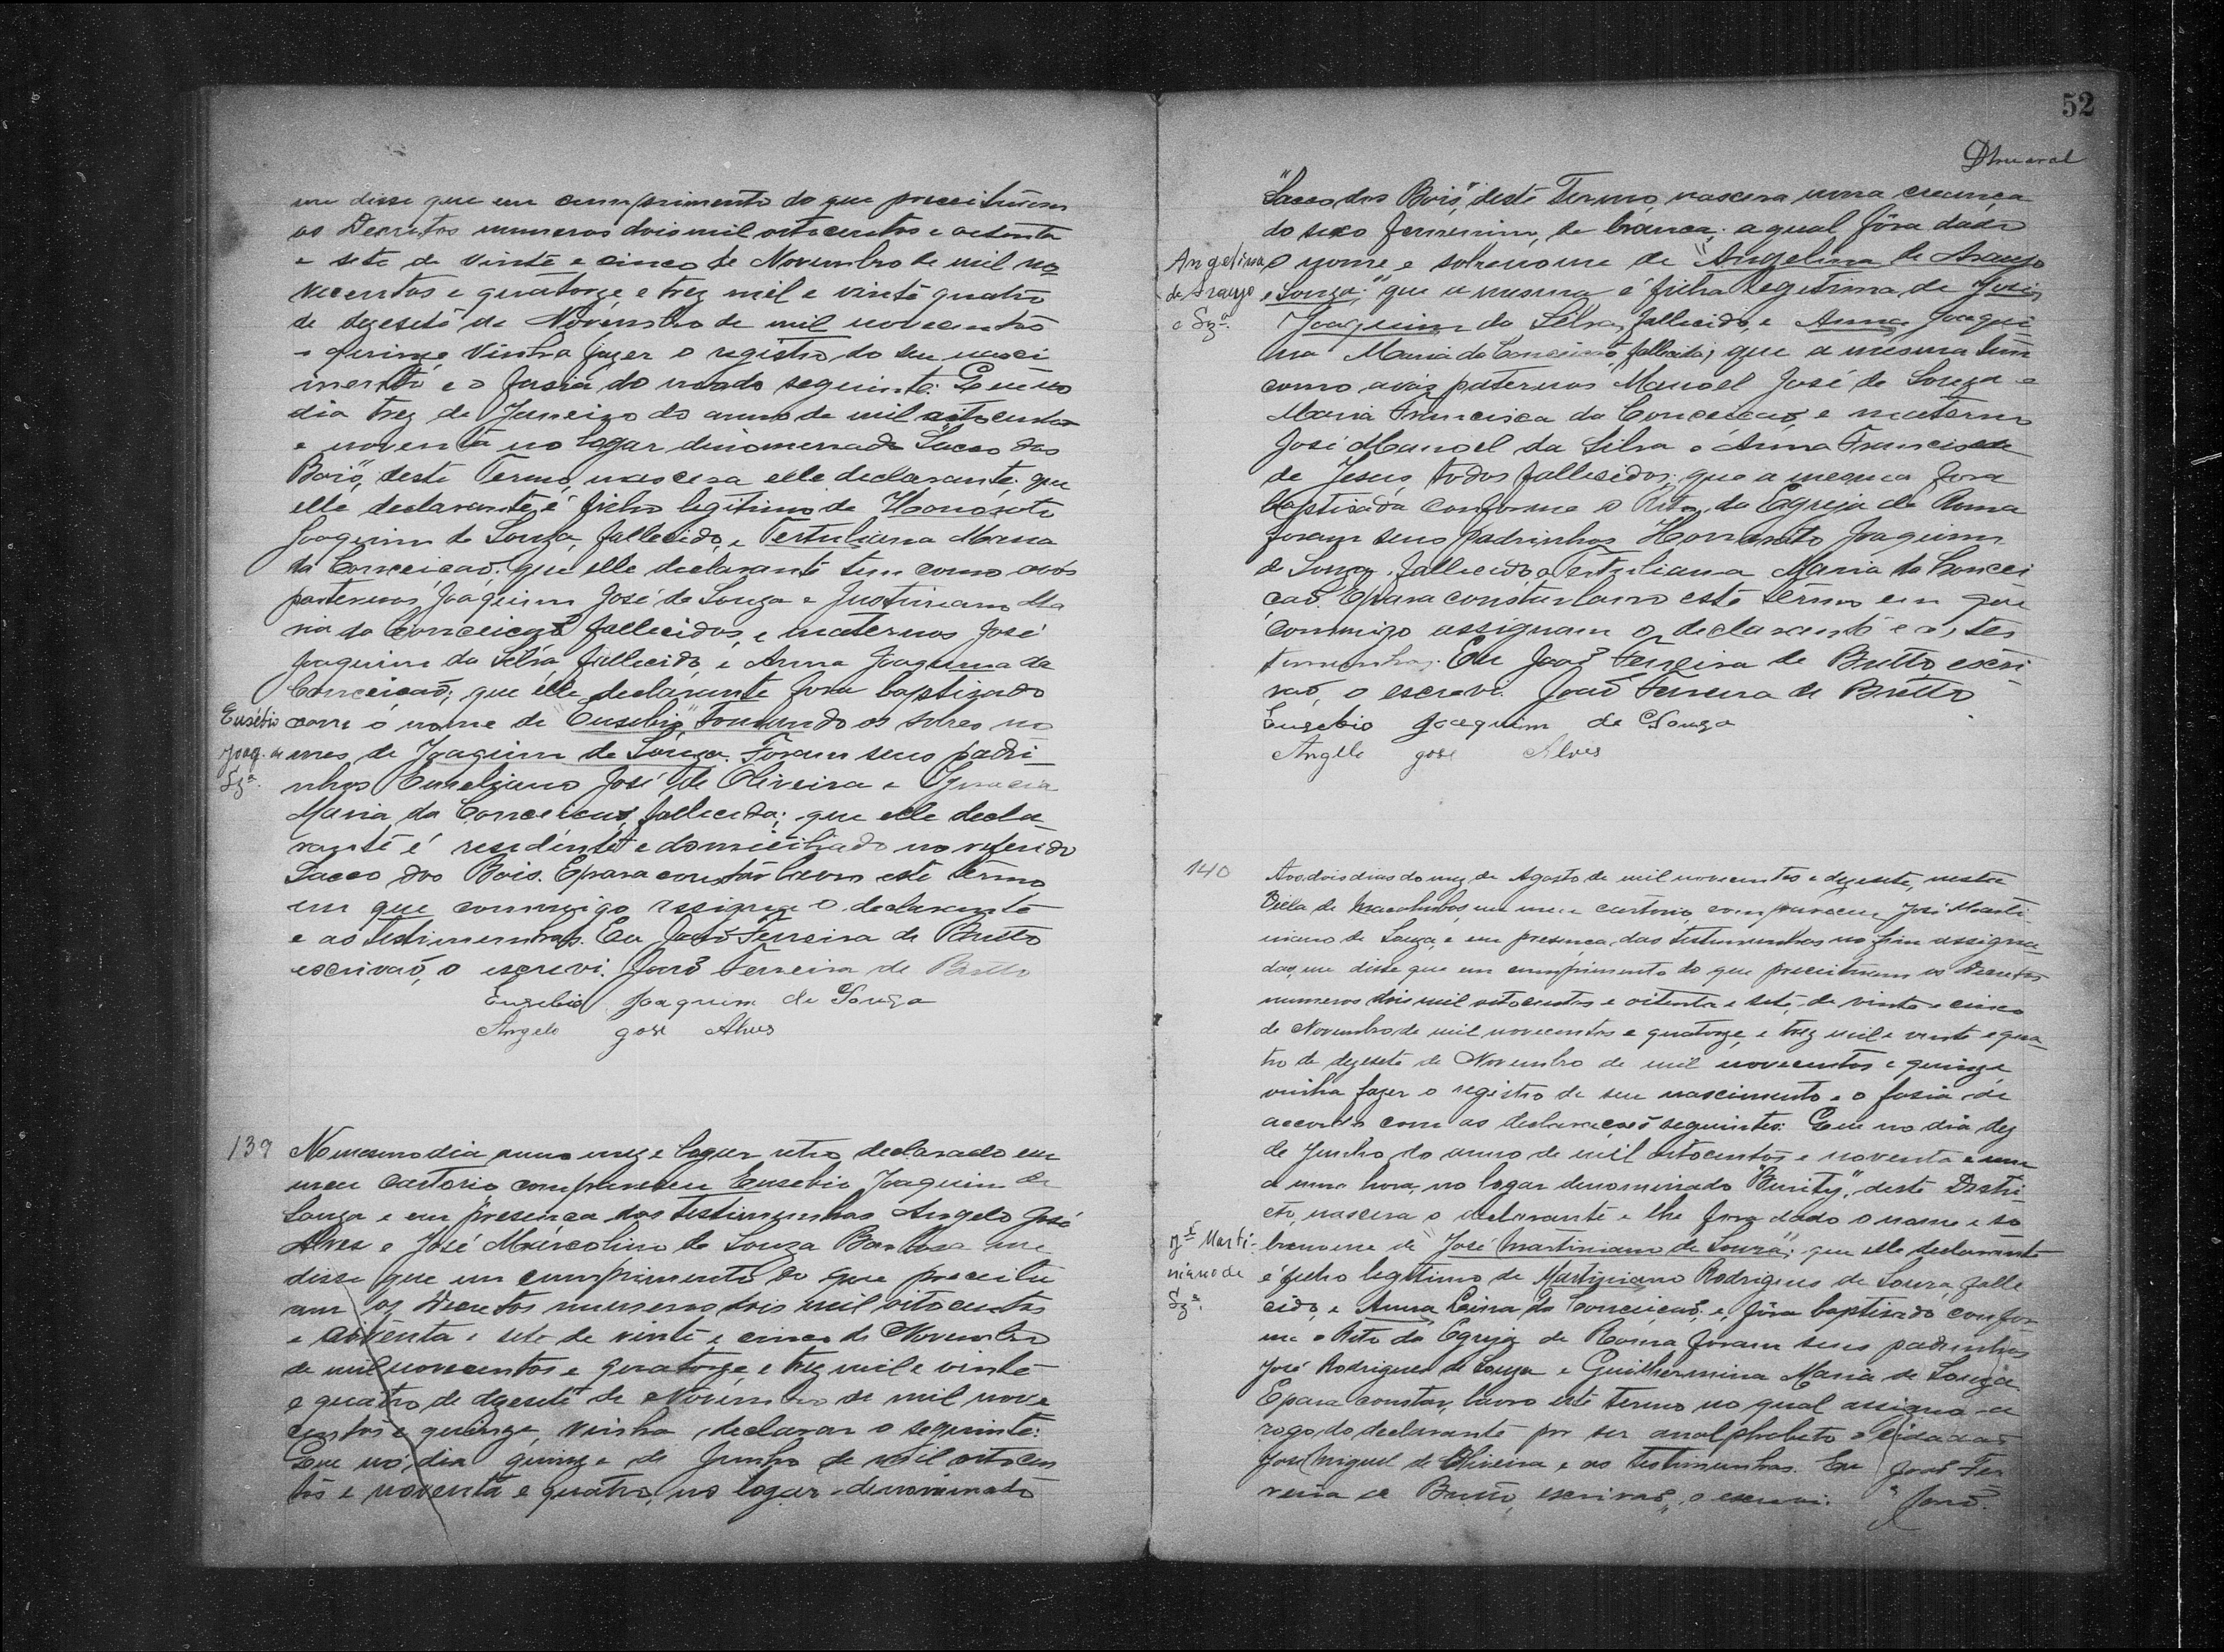 me disse que em cumprimento do que preceituam
os Decretos numeros dois mil oitocentos e oitenta
e sete de vinte e cinco de Novembro de mil no
vecentos e quatorze, e trez mil e vinte quatro
de dezesete de Novembro de mil novecentos
e quinze vinha fazer o registro do seu nasci
mento e o fasia do modo seguinte: Que no
dia trez de Janeiro do anno de mil oitocentos
e noventa no logar denominado "Sacco dos
Bois", deste Termo, nascera elle declarante; que
elle declarante é filho legitimo de Honorato
Joaquim de Souza, fallecido, e Tertuliana Maria
da Conceicaõ; que elle declarante tem como avós
paternos Joaquim José de Souza e Justiniana Ma
ria da Conceicaõ fallecidos, e maternos José
Joaquim da Silva, fallecido, e Anna Joaquina da
Conceicaõ; que elle declarante fora baptizado
Eusébio
Joaq. de
Sz.ª
com o nome de "Eusebio", tomando os sobre no
mes de Joaquim de Souza. Foram seus padri-
nhos Aureliano José de Oliveira e Ignacia
Maria da Conceicaõ, fallecida; que elle decla-
rante é residente e domiciliado no referido
Sacco dos Bois. E para constár lavro este termo
em que commigo assigna o declarante
e as testimunhas. Eu Joaõ Ferreira de Britto
escrivaõ, o escrevi. Joaõ Ferreira de Britto
Euzebio Joaquim de Souza
Angelo gose Alves
139
No mesmo dia, anno, mez e logar retro declarado em
meu cartorio compareceu Eusebio Joaquim de
Souza e em presenca das testimunhas Angelo José
Alves e José Marcolino de Souza Barbosa me
disse que em cumprimento do que preceitu
am os Decretos numeros dois mil oitocentos
e oitenta e sete de vinte e cinco de Novembro
de mil novecentos e quatorze, e trez mil e vinte
e quatro de dezesete de Novembro de mil nove
centos e quinze, vinha declarar o seguinte:
Que no dia quinze de Junho de mil oitocen
tos e noventa e quatro, no logar denominado
52
"Sacco dos Bois", deste Termo, nascera uma creança
do sexo feminino, de branca; a qual fôra dado
Angelina
de Araujo
e Sz.ª
o nome e sobrenome de "Angelina de Araujo
e Souza;" que a mesma é filha legitima de José
Joaquim da Silva, fallecido, e Anna Joaqui
na Maria da Conceicaõ, fallecida; que a mesma tem
como avóz paternos Manoel José de Souza e
Maria Francisca da Conceicaõ, e materno
José Manoel da Silva e Anna Francisca
de Jesus, todos fallecidos; que a mesma fora
baptisada conforme o Rito da Egreja de Roma
foram seus padrinhos Honorato Joaquim
de Souza, fallecido, e Tertuliana Maria da Concei
caõ. E para constar lavro este termo em que
commigo assignam o declarante e as tes
timunhas. Eu Joaõ Ferreira de Britto, escri
vaõ, o escrevi. Joaõ Ferreira de Britto
Euzebio Joaquim de Souza
Angello gose Alves
140
Aos dois dias do mez de Agosto de mil novecentos e dezesete, nesta
Villa de em meu cartorio, compareceu José Marti-
niano de Souza, e em presença das testimunhas no fim assigna
das, me disse que em cumprimento do que preceituam os Decretos
numeros dois mil oitocentos e oitenta e sete, de vinte e cinco
de Novembro de mil novecentos e quatorze, e trez mil e vinte e qua-
tro de dezesete de Novembro de mil novecentos e quinze
vinha fazer o registro de seu nascimento e o fasia de
accordo com as declaracoẽs seguintes: Que no dia dez
de Junho do anno de mil oitocentos e noventa e um
a uma hora, no logar denominado "Burity", deste Distri-
cto, nascera o declarante e lhe fora dado o nome e so
J.e Marti-
niano de
Sz.ª
brenome de "José Martiniano de Souza"; que elle declarante
é filho legitimo de Martiniano Rodrigues de Souza, falle
cido, e Anna da Conceicaõ; e, fôra baptisado confor
me o Rito da Egreja de Roma foram seus padrinhos
José Rodrigues de Souza e Guilhermina Maria de Souza.
E para constar, lavro este termo no qual assigna a
rogo do declarante por ser analphabeto o cidadaõ
José Miguel de Oliveira e as testimunhas. Eu Joaõ Fer
reira de Britto, escrivaõ, o escrevi. Joaõ.